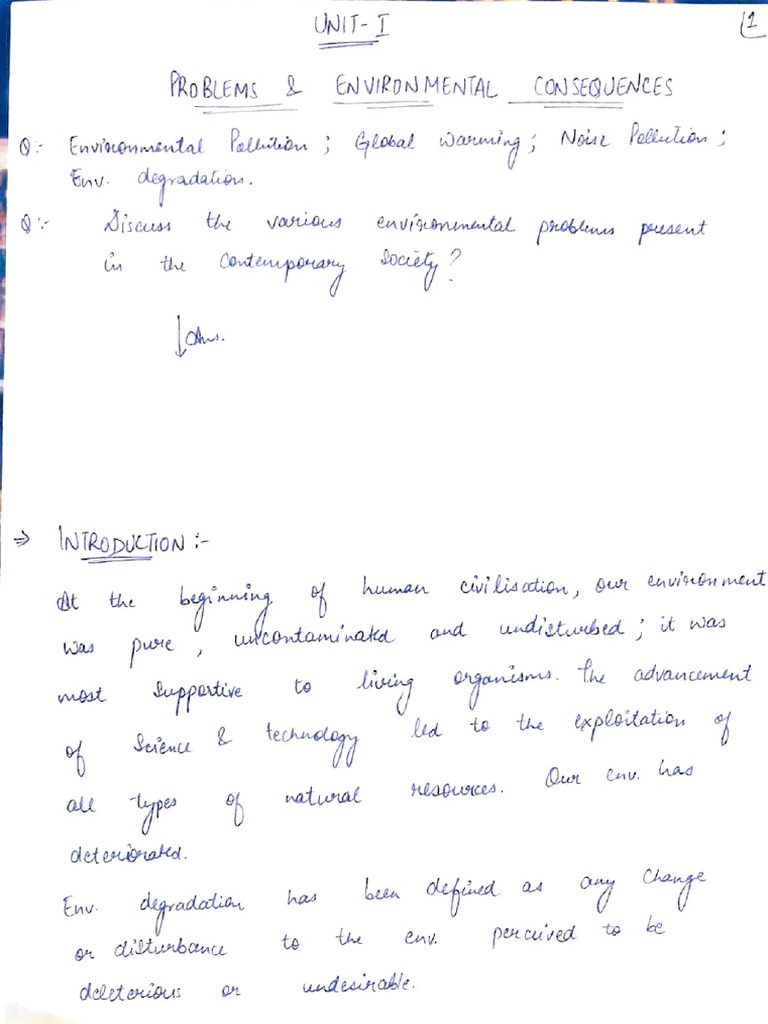 UNIT-I
1
PROBLEMS & ENVIRONMENTAL CONSEQUENCES
Q:- Environmental Pollution ; Global Warming ; Noise Pollution ;
Env. degradation.
Q:- Discuss the various environmental problems present
in the contemporary society?
↓ Ans.
⇒ INTRODUCTION :-
At the beginning of human civilisation, our environment
was pure, uncontaminated and undisturbed ; it was
most supportive to living organisms. The advancement
of science & technology led to the exploitation of
all types of natural resources. Our env. has
deteriorated.
Env. degradation has been defined as any change
or disturbance to the env. perceived to be
deleterious or undesirable.